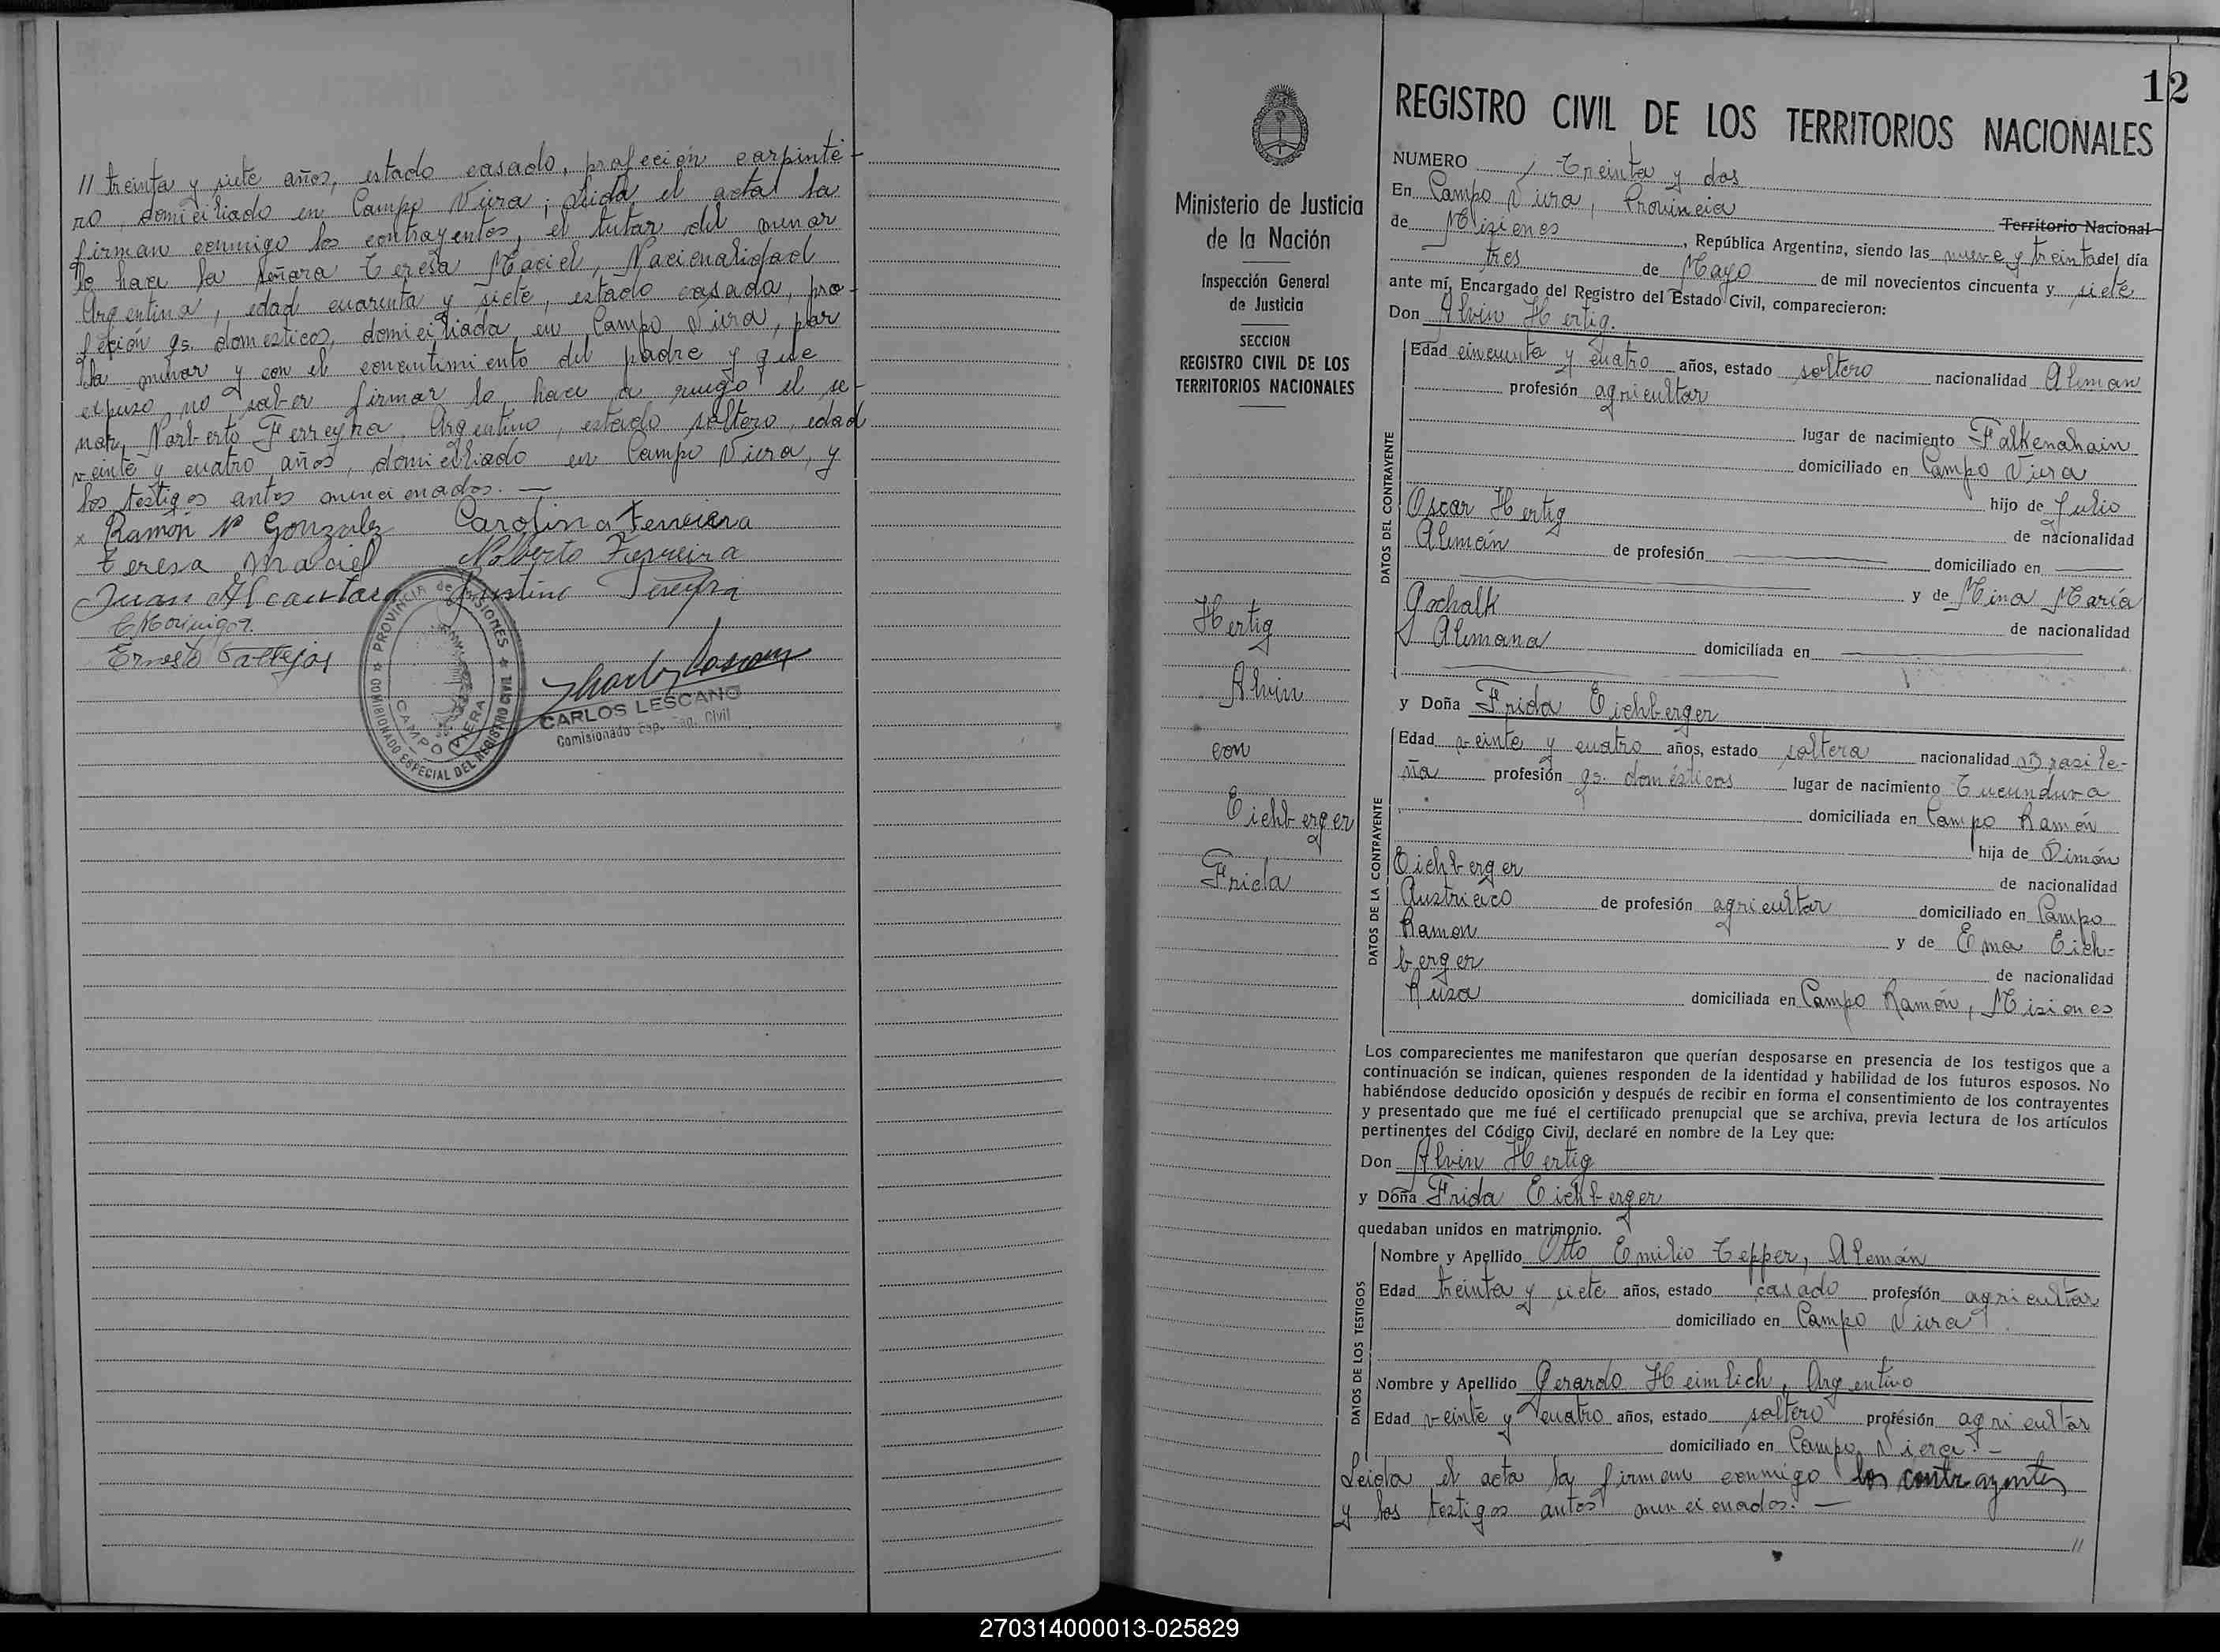 // treinta y siete años, estado casado, profeción carpinte-
ro, domiciliado en Campo Viera; Leida el acta la
firman conmigo los contrayentes, el tutor del menor
lo hace la señora Teresa Maciel, Nacionalidad
Argentina, edad cuarenta y siete, estado casada, pro-
feción qs. domesticos, domiciliada en Campo Viera, por
la menor y con el concentimiento del padre y que
expuso no saber firmar lo hace a ruego el se-
ñor, Norberto Ferreyra, Argentino, estado soltero, edad
veinte y cuatro años, domiciliado en Campo Viera, y
los testigos antes mencionados. —
x Ramón N Gonzalez Carolina Ferreira
Teresa Maciel Norberto Ferreira
Juan Alcantara
Ernesto Vallejos
PROVINCIA de MISIONES
COMISIONADO ESPECIAL DEL REGISTRO CIVIL
CAMPO VIERA
CARLOS LESCANO
Comisionado Esp. Reg. Civil
12
Ministerio de Justicia
de la Nación
Inspección General
de Justicia
SECCION
REGISTRO CIVIL DE LOS
TERRITORIOS NACIONALES
Hertig
Alvin
con
Eichberger
Frida
REGISTRO CIVIL DE LOS TERRITORIOS NACIONALES
NUMERO Treinta y dos
En Campo Viera, Provincia Territorio Nacional
de Misiones, República Argentina, siendo las nueve y treinta del día
tres de Mayo de mil novecientos cincuenta y siete
ante mí, Encargado del Registro del Estado Civil, comparecieron:
Don Alvin Hertig.
DATOS DEL CONTRAYENTE
Edad cincuenta y cuatro años, estado soltero nacionalidad Aleman
profesión agricultor
lugar de nacimiento Falkenhain
domiciliado en Campo Viera
hijo de Julio
Oscar Hertig de nacionalidad
Alemán de profesión domiciliado en
y de Mina María
Gschalk de nacionalidad
Alemana domiciliada en
y Doña Frida Eichberger
DATOS DE LA CONTRAYENTE
Edad veinte y cuatro años, estado soltera nacionalidad Brasile-
ña profesión qs. domésticos lugar de nacimiento Tucunduva
domiciliada en Campo Ramón
hija de Simón
Eichberger de nacionalidad
Austriaco de profesión agricultor domiciliado en Campo
Ramon y de Ema Eich-
berger de nacionalidad
Rusa domiciliada en Campo Ramón, Misiones
Los comparecientes me manifestaron que querían desposarse en presencia de los testigos que a
continuación se indican, quienes responden de la identidad y habilidad de los futuros esposos. No
habiéndose deducido oposición y después de recibir en forma el consentimiento de los contrayentes
y presentado que me fué el certificado prenupcial que se archiva, previa lectura de los artículos
pertinentes del Código Civil, declaré en nombre de la Ley que:
Don Alvin Hertig
y Doña Frida Eichberger
quedaban unidos en matrimonio.
DATOS DE LOS TESTIGOS
Nombre y Apellido Otto Emilio Tepper, Alemán
Edad treinta y siete años, estado casado profesión agricultor
domiciliado en Campo Viera
Nombre y Apellido Gerardo Heimlich, Argentino
Edad veinte y cuatro años, estado soltero profesión agricultor
domiciliado en Campo Viera. —
Leida el acta la firman conmigo los contrayentes
y los testigos antes mencionados. —
//
270314000013-025829